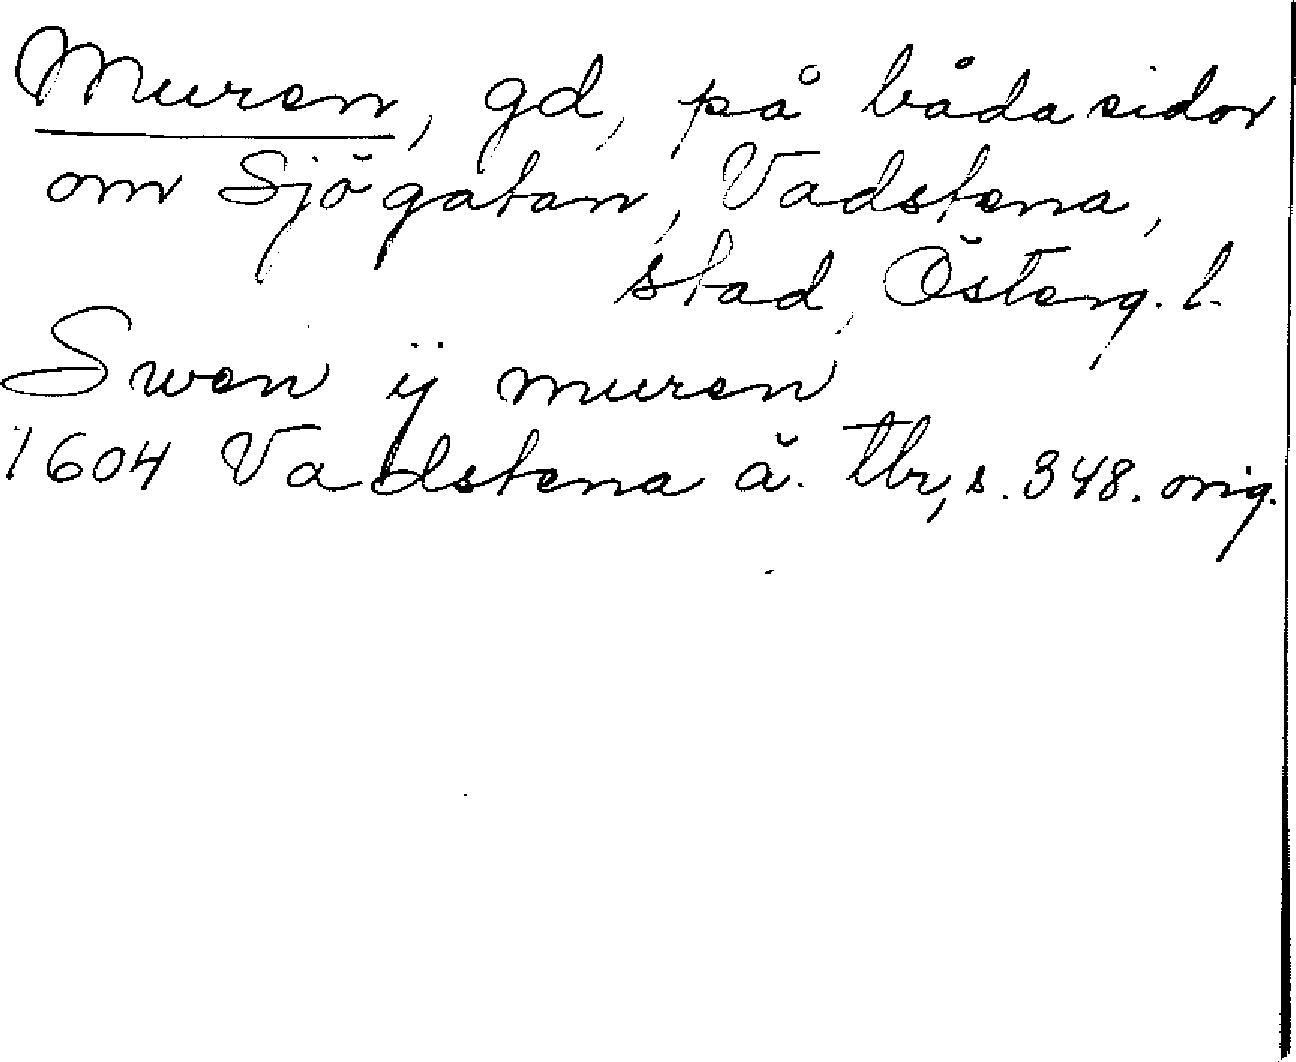 Muren, gd, på båda sidor
om Sjögatan, Vadstena,
stad, Österg. l.
Swen ÿ muren
1604 Vadstena ä. tbr, s. 348. orig.